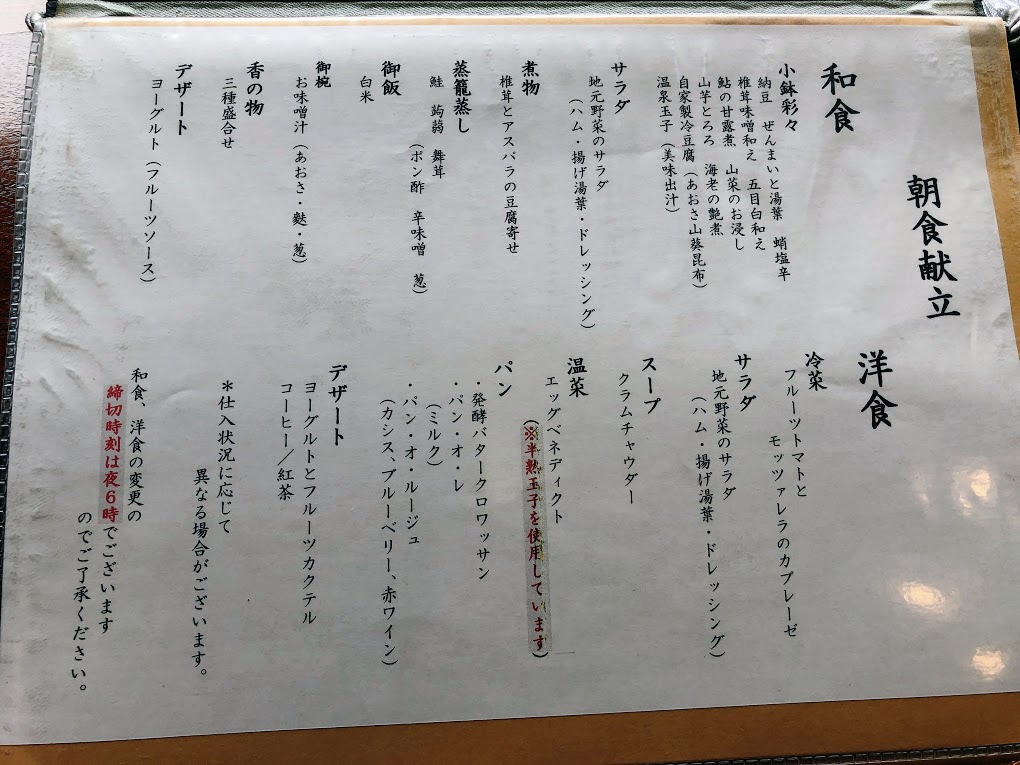 朝食献立
和食
小鉢彩々
納豆　ぜんまいと湯葉　蛸塩辛
椎茸味噌和え　五目白和え
鮎の甘露煮　山菜のお浸し
山芋とろろ　海老の艶煮
自家製冷豆腐（あおさ山葵昆布）
温泉玉子（美味出汁）
サラダ
地元野菜のサラダ
（ハム・揚げ湯葉・ドレッシング）
煮物
椎茸とアスパラの豆腐寄せ
蒸籠蒸し
鮭　蒟蒻　舞茸
（ポン酢　辛味噌　葱）
御飯
白米
御椀
お味噌汁（あおさ・麩・葱）
香の物
三種盛合せ
デザート
ヨーグルト（フルーツソース）
洋食
冷菜
フルーツトマトと
モッツァレラのカプレーゼ
サラダ
地元野菜のサラダ
（ハム・揚げ湯葉・ドレッシング）
スープ
クラムチャウダー
温菜
エッグベネディクト
（※半熟玉子を使用しています）
パン
・発酵バタークロワッサン
・パン・オ・レ
（ミルク）
・パン・オ・ルージュ
（カシス、ブルーベリー、赤ワイン）
デザート
ヨーグルトとフルーツカクテル
コーヒー／紅茶
＊仕入状況に応じて
異なる場合がございます。
和食、洋食の変更の
締切時刻は夜６時でございます
のでご了承ください。